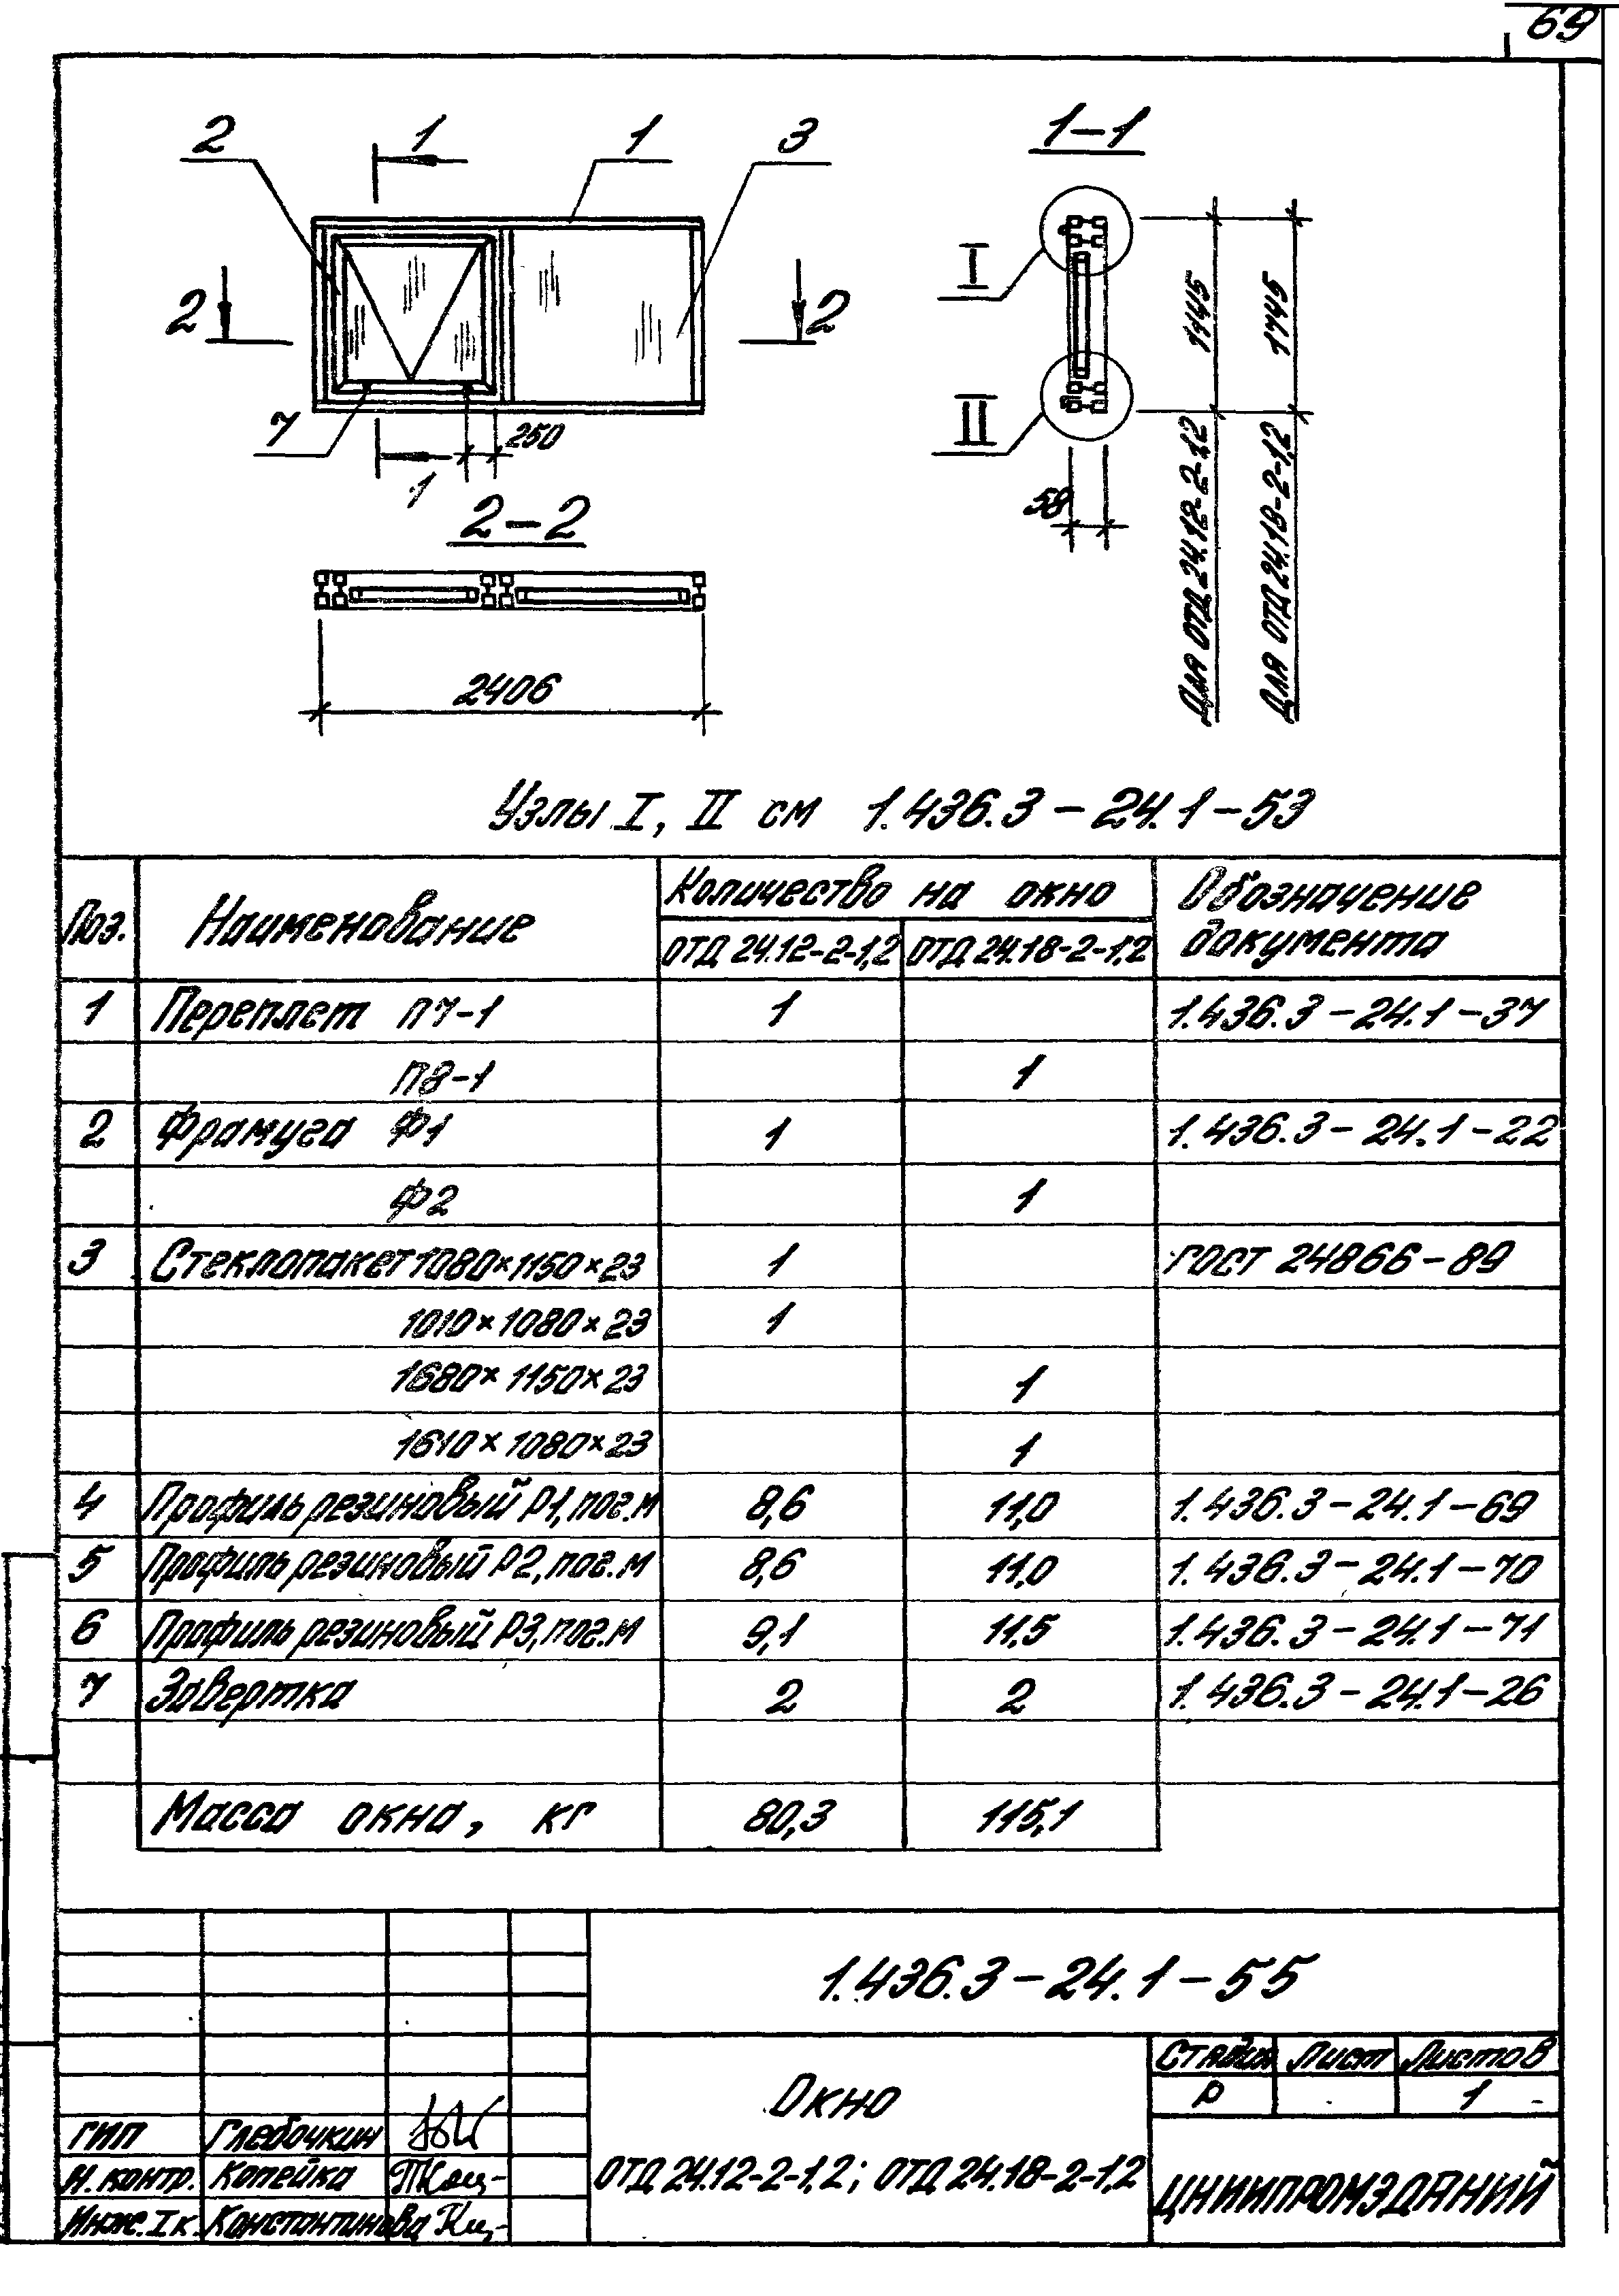 69
2 1 1 3
1-1
I
2 2
1145
1745
7
250
II
1
58
2-2
2406
Для ОТД 24.12-2-1,2
Для ОТД 24.18-2-1,2
Узлы I, II см 1.436.3 - 24.1 - 53
Поз. Наименование Количество на окно Обозначение документа
ОТД 24.12-2-1,2 ОТД 24.18-2-1,2
1 Переплет П7-1 1 1.436.3 - 24.1 - 37
П8-1 1
2 Фрамуга Ф1 1 1.436.3 - 24.1 - 22
Ф2 1
3 Стеклопакет 1080×1150×23 1 ГОСТ 24866-89
1010×1080×23 1
1680×1150×23 1
1610×1080×23 1
4 Профиль резиновый Р1, пог.м 8,6 11,0 1.436.3 - 24.1 - 69
5 Профиль резиновый Р2, пог.м 8,6 11,0 1.436.3 - 24.1 - 70
6 Профиль резиновый Р3, пог.м 9,1 11,5 1.436.3 - 24.1 - 71
7 Завертка 2 2 1.436.3 - 24.1 - 26
Масса окна, кг 80,3 115,1
1.436.3 - 24.1 - 55
Стадия Лист Листов
Р 1
Окно
ОТД 24.12-2-1,2; ОТД 24.18-2-1,2
ЦНИИПРОМЗДАНИЙ
ГИП Глебочкин
Н. контр. Копейка
Инж. I к. Константинова